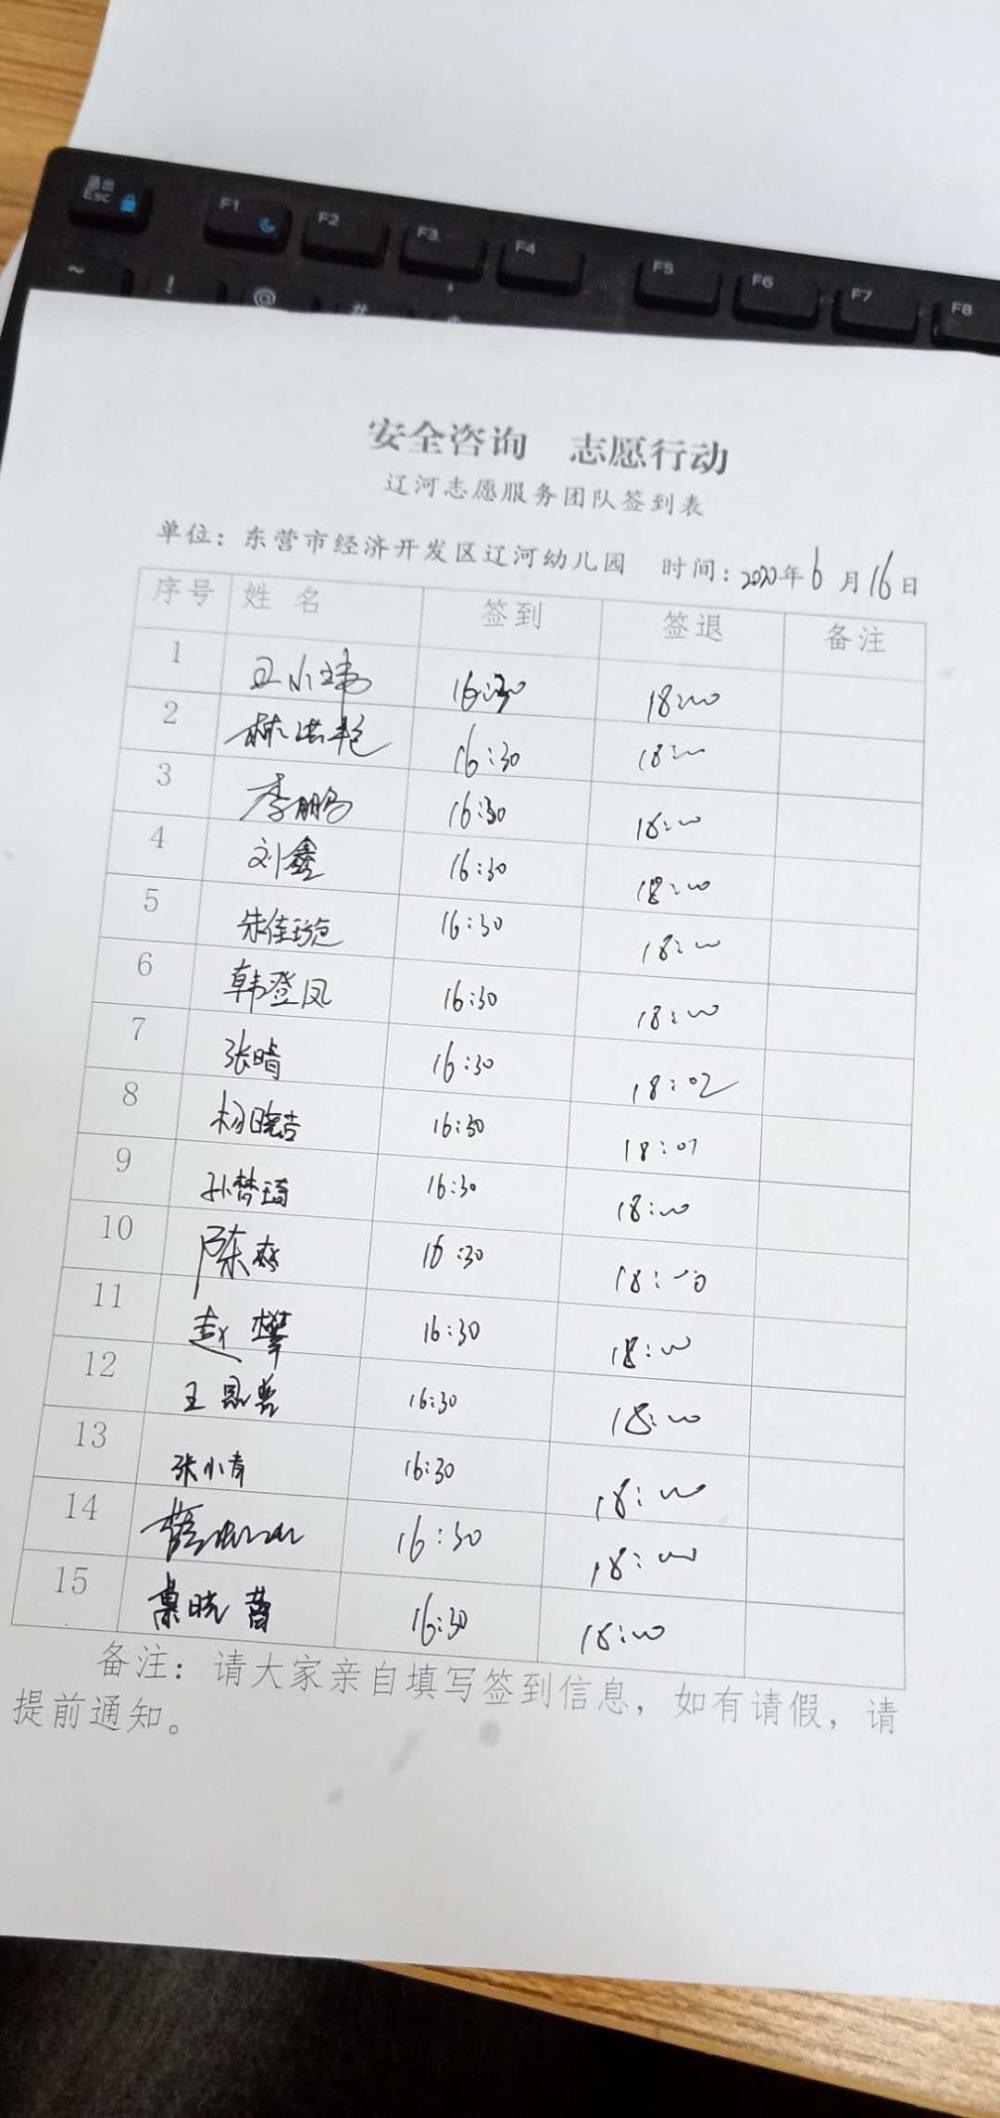 退出
Esc
F1
F2
F3
F4
F5
F6
F7
F8
~
!
@
#
安全咨询 志愿行动
辽河志愿服务团队签到表
单位：东营市经济开发区辽河幼儿园 时间：2020年6月16日
序号 姓名 签到 签退 备注
1 王小玮 16:30 18:00
2 林洪艳 16:30 18:00
3 李鹏 16:30 18:00
4 刘鑫 16:30 18:00
5 朱佳琬 16:30 18:00
6 韩登凤 16:30 18:00
7 张晴 16:30 18:02
8 杨晓吉 16:30 18:01
9 孙梦琦 16:30 18:00
10 陈 16:30 18:00
11 赵攀 16:30 18:00
12 王 16:30 18:00
13 张小青 16:30 18:00
14 16:30 18:00
15 晓 16:30 18:00
备注：请大家亲自填写签到信息，如有请假，请
提前通知。